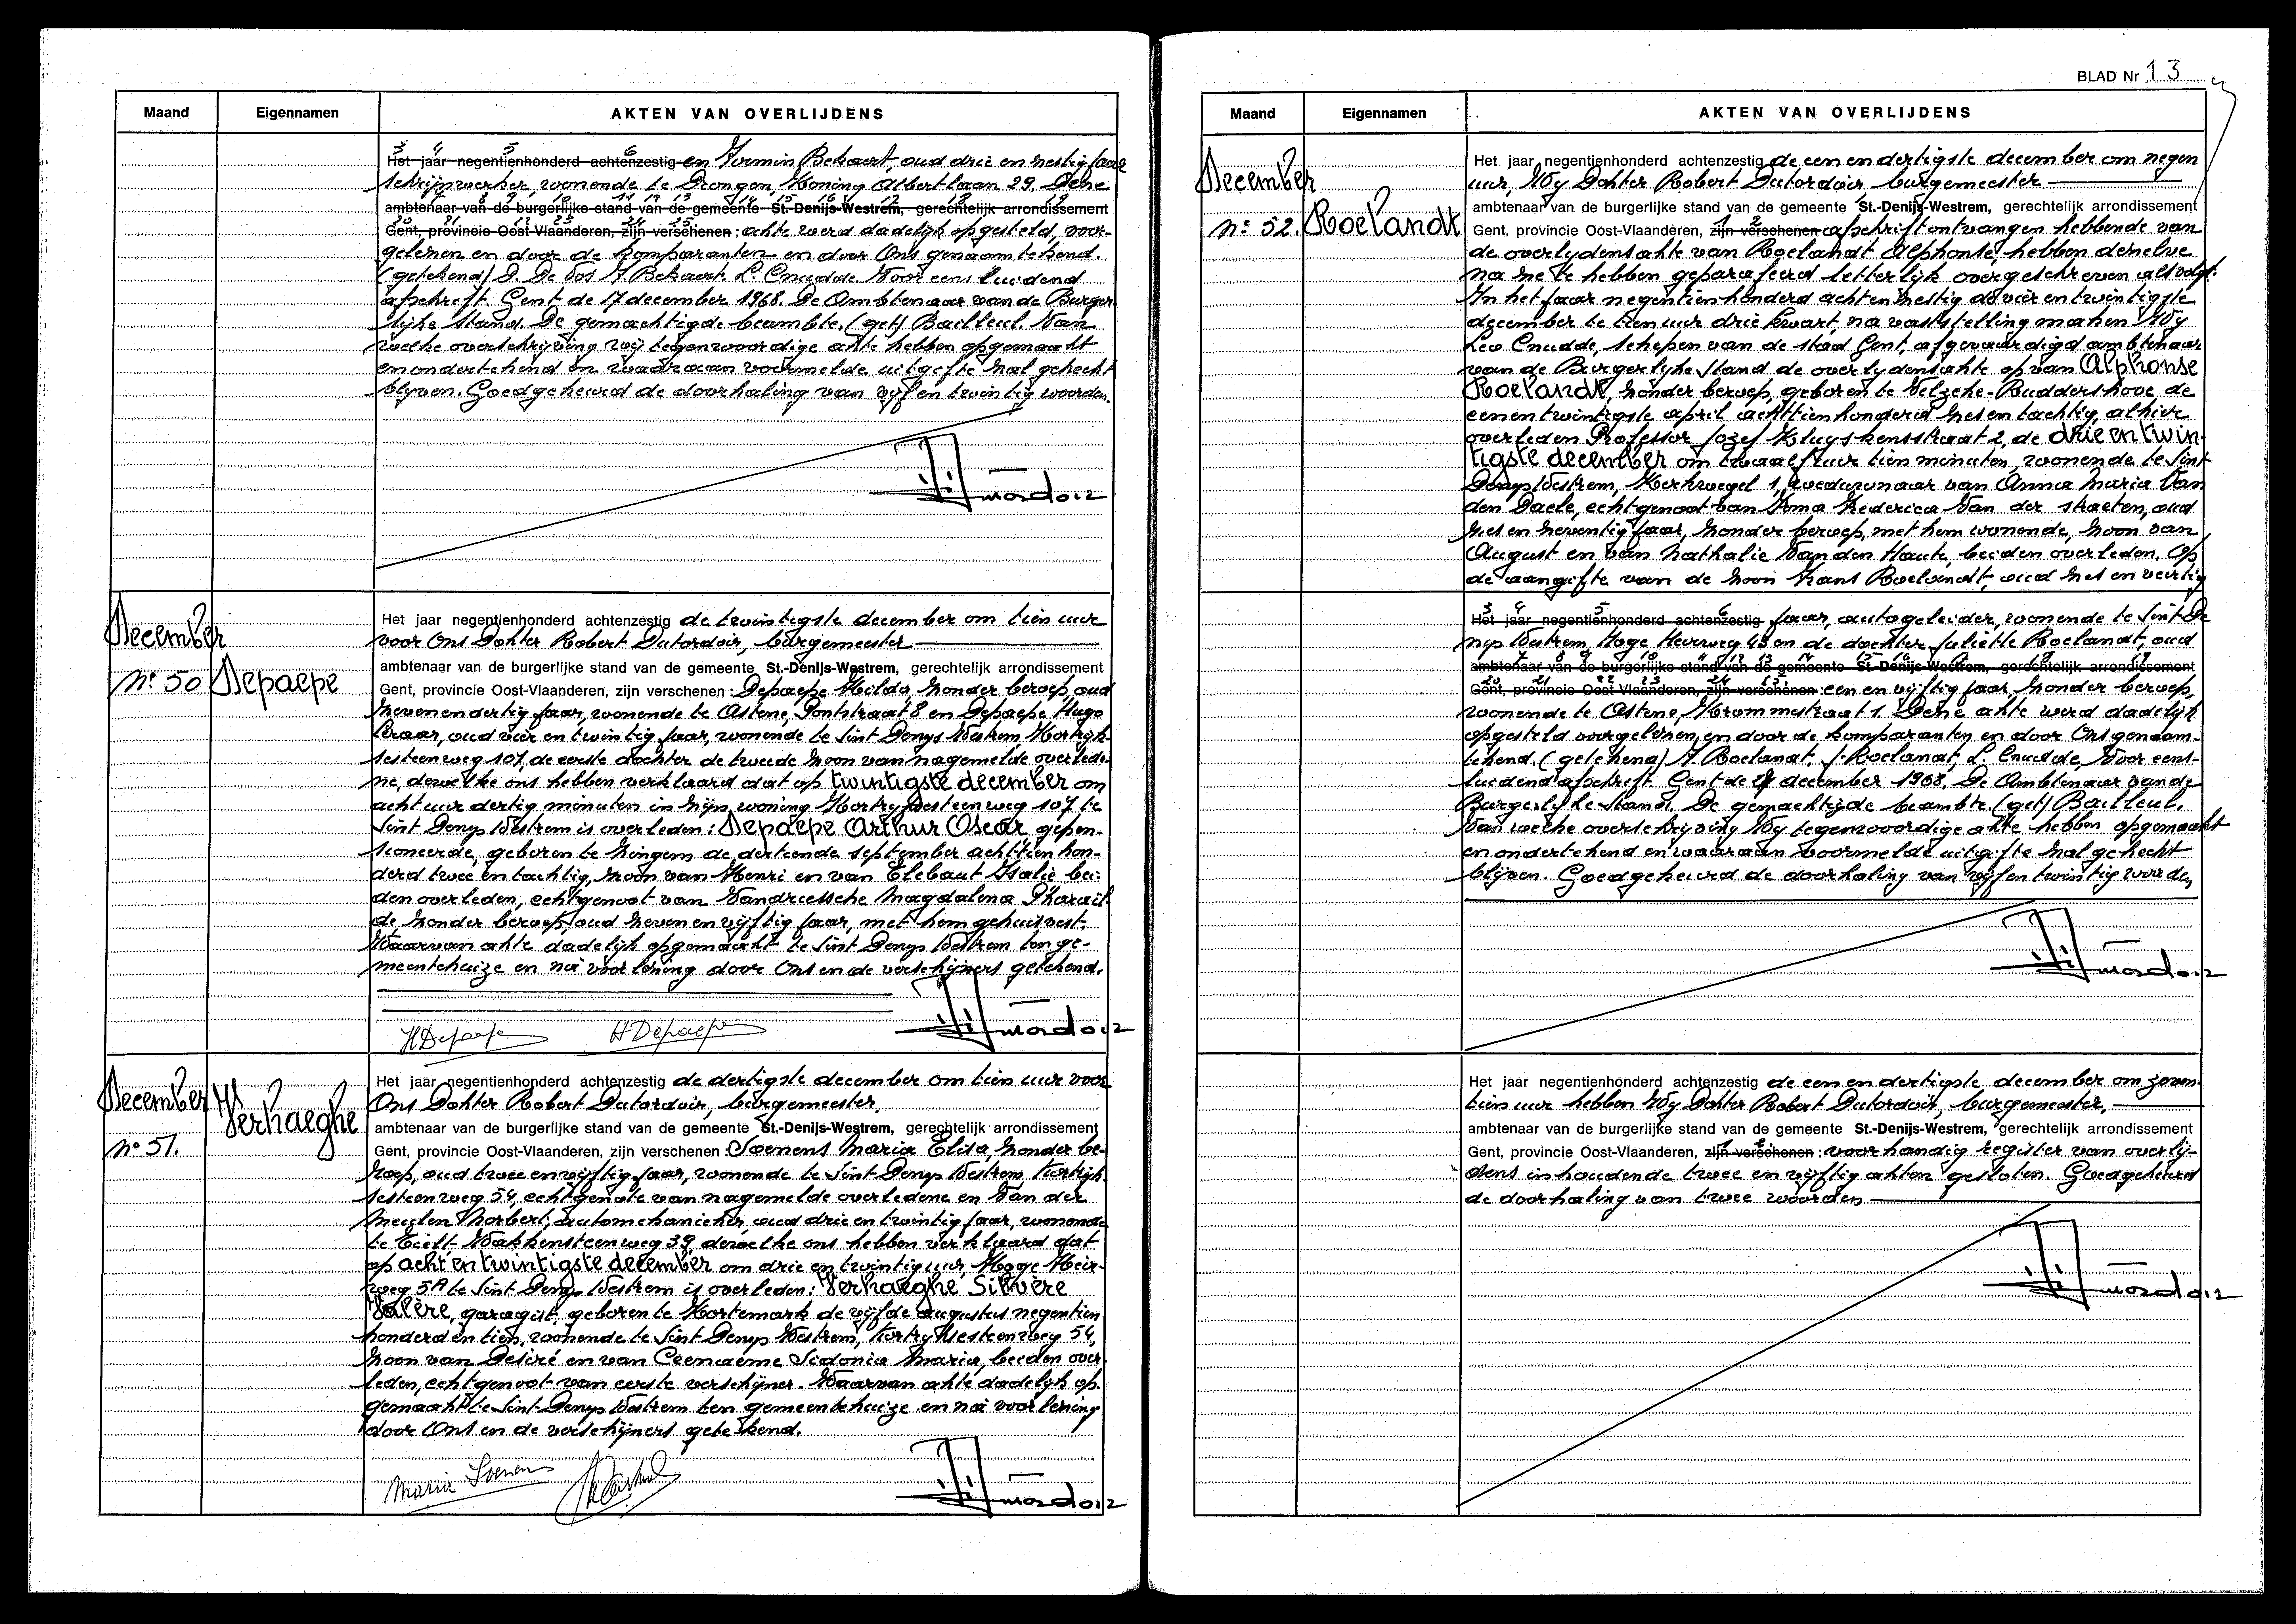 Maand Eigennamen AKTEN VAN OVERLIJDENS
Het jaar negentienhonderd achtenzestig en Firmin Bekaert, oud drie en zestig jaar
schrijnwerker, wonende te Drongen, Koning Albertlaan 29. Deze
ambtenaar van de burgerlijke stand van de gemeente St.-Denijs-Westrem, gerechtelijk arrondissement
Gent, provincie Oost-Vlaanderen, zijn verschenen : akte werd dadelijk opgesteld, voor-
gelezen en door de komparanten en door Ons genaamtekend.
(getekend) D. De Vos F. Bekaert L. Cnudde. Voor eensluidend
afschrift. Gent de 17 december 1968. De Ambtenaar van de Burger
lijke Stand. De gemachtigde beambte. (get) Bailleul. Van
welke overschrijving wij tegenwoordige akte hebben opgemaakt
en ondertekend en waaraan voormelde uitgifte zal gehecht
blijven. Goedgekeurd de doorhaling van vijf en twintig woorden.
December
Nr 50
Depaepe
Het jaar negentienhonderd achtenzestig de twintigste december om tien uur
voor Ons Dokter Robert Dutordoir, burgemeester
ambtenaar van de burgerlijke stand van de gemeente St.-Denijs-Westrem, gerechtelijk arrondissement
Gent, provincie Oost-Vlaanderen, zijn verschenen : Depaepe Hilda, zonder beroep, oud
zevenendertig jaar, wonende te Astene, Pontstraat 8 en Depaepe Hugo
leraar, oud vier en twintig jaar, wonende te Sint Denys Westrem Kortryk-
sesteenweg 107, de eerste dochter de tweede zoon van nagemelde overlede-
ne, dewelke ons hebben verklaard dat op twintigste december om
acht uur dertig minuten in zijn woning Kortryksesteenweg 107 te
Sint Denys Westrem is overleden : Depaepe Arthur Oscar gepen-
sioneerde, geboren te Zingem de dertiende september achttien hon-
derd twee en tachtig, zoon van Henri en van Elebaut Italie bei-
den overleden, echtgenoot van Vandriessche Magdalena Pharaïl-
de, zonder beroep, oud zeven en vijftig jaar, met hem gehuisvest.
Waarvan akte dadelijk opgemaakt te Sint Denys Westrem ten ge-
meentehuize en na voorlezing door Ons en de verschijners getekend.
HDepaepe HDepaepe
December
Nr 51.
Verhaeghe
Het jaar negentienhonderd achtenzestig de dertigste december om tien uur voor
Ons Dokter Robert Dutordoir, burgemeester.
ambtenaar van de burgerlijke stand van de gemeente St.-Denijs-Westrem, gerechtelijk arrondissement
Gent, provincie Oost-Vlaanderen, zijn verschenen : Soenens Maria Elisa, zonder be-
roep, oud twee en vijftig jaar, wonende te Sint Denys Westrem Kortryk-
sesteenweg 54, echtgenote van nagemelde overledene en Van der
Meulen Norbert, automekanieker, oud drie en twintig jaar, wonende
te Tielt Wakkensteenweg 39, dewelke ons hebben verklaard dat
op acht en twintigste december om drie en twintig uur, Hoge Heir-
weg 5A te Sint Denys Westrem is overleden : Verhaeghe Silvère
Valère, garagist, geboren te Kortemark de vijfde augustus negentien
honderd en tien, wonende te Sint Denys Westrem, Kortryksesteenweg 54,
zoon van Desiré en van Ceenaeme Sidonia Maria, beiden over
leden, echtgenoot van eerste verschijner. Waarvan akte dadelijk op-
gemaakt te Sint Denys Westrem ten gemeentehuize en na voorlezing
door Ons en de verschijners getekend.
Maria Soenens
BLAD Nr 13
Maand Eigennamen AKTEN VAN OVERLIJDENS
December
Nr 52.
Roelandt
Het jaar negentienhonderd achtenzestig de een en dertigste december om negen
uur, Wy Dokter Robert Dutordoir burgemeester
ambtenaar van de burgerlijke stand van de gemeente St.-Denijs-Westrem, gerechtelijk arrondissement
Gent, provincie Oost-Vlaanderen, zijn verschenen afschrift ontvangen hebbende van
de overlydensakte van Roelandt Alphonse, hebben dezelve
na ze te hebben geparafeerd letterlijk overgeschreven als volgt:
In het jaar negentienhonderd acht en zestig de vier en twintigste
december te tien uur drie kwart, na vaststelling maken Wy
Leo Cnudde, schepen van de stad Gent, afgevaardigd ambtenaar
van de Burgerlyke Stand de overlydensakte op van Alphonse
Roelandt, zonder beroep, geboren te Velzeke-Ruddershove de
eenentwintigste april achttienhonderd zes en tachtig, alhier
overleden Professor Jozef Kluyskensstraat 2, de drie en twin-
tigste december om twaalf uur tien minuten, wonende te Sint
Denys Westrem, Kerkwegel 1, weduwnaar van Anna Maria Van
den Daele, echtgenoot van Irma Frederica Van der Straeten, oud
zes en zeventig jaar, zonder beroep, met hem wonende, zoon van
August en van Nathalie Van den Haute, beiden overleden. Op
de aangifte van de zoon Frans Roelandt, oud zes en veertig
Het jaar negentienhonderd achtenzestig jaar, autogeleider, wonende te Sint-De
nys Westrem, Hoge Heerweg 43 en de dochter Juliette Roelandt, oud
ambtenaar van de burgerlijke stand van de gemeente St.-Denijs-Westrem, gerechtelijk arrondissement
Gent, provincie Oost-Vlaanderen, zijn verschenen : een en vijftig jaar, zonder beroep,
wonende te Astene, Krommestraat 1. Deze akte werd dadelijk
opgesteld voorgelezen, en door de komparanten en door Ons genaam-
tekend. (getekend) F. Roelandt, J. Roelandt, L. Cnudde, Voor eens-
luidend afschrift. Gent de december 1968. De Ambtenaar van de
Burgerlijke Stand. De gemachtigde beambte. (get) Bailleul.
Van welke overschrijving Wy tegenwoordige akte hebben opgemaakt
en ondertekend en waaraan voormelde uitgifte zal gehecht
blijven. Goedgekeurd de doorhaling van vijf en twintig woorden
Het jaar negentienhonderd achtenzestig de een en dertigste december om zeven-
tien uur hebben Wy Dokter Robert Dutordoir, burgemeester,
ambtenaar van de burgerlijke stand van de gemeente St.-Denijs-Westrem, gerechtelijk arrondissement
Gent, provincie Oost-Vlaanderen, zijn verschenen : voorhandig register van overlij-
dens inhoudende twee en vijftig akten gesloten. Goedgekeurd
de doorhaling van twee woorden